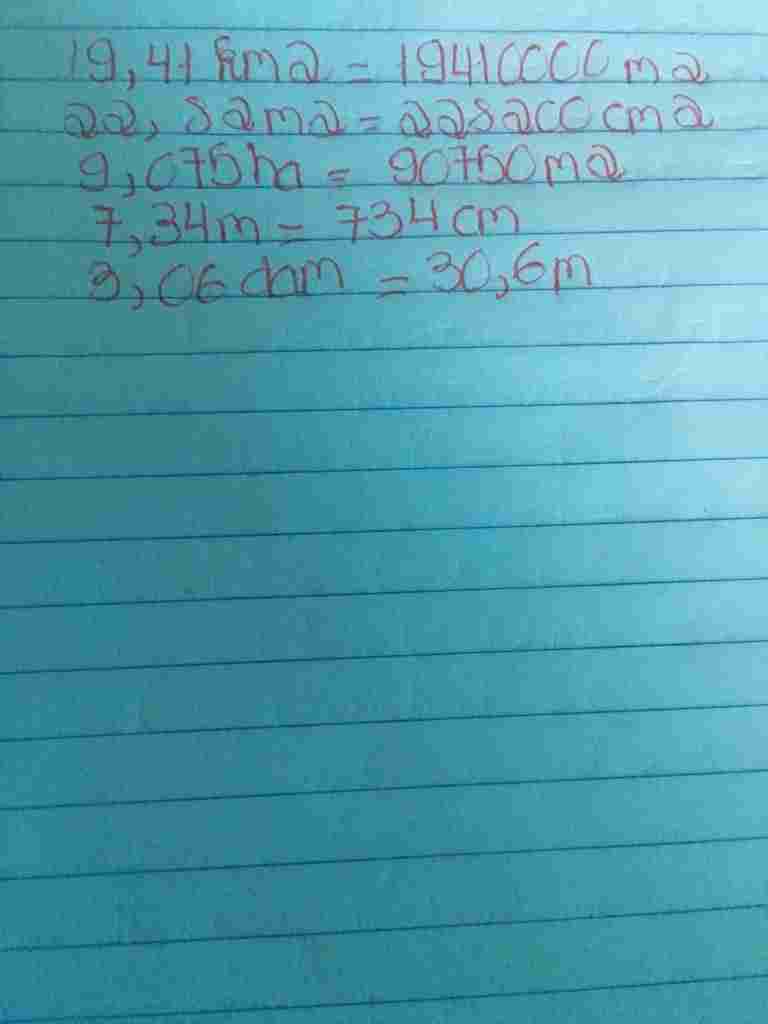 19,41 km2 = 19410000 m2
22,82m2 = 228200 cm2
9,075ha = 90750m2
7,34m = 734cm
3,06 dam = 30,6m